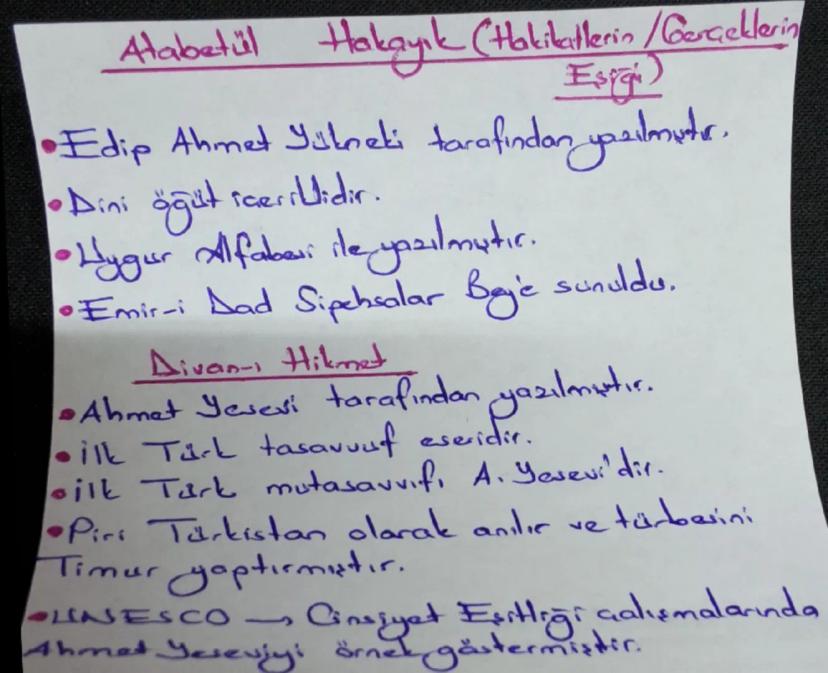 Atabetül Hakayık (Hakikatlerin / Gerçeklerin
Eşiği)
• Edip Ahmet Yükneki tarafından yazılmıştır.
• Dini öğüt içeriklidir.
• Uygur Alfabesi ile yazılmıştır.
• Emir-i Dad Sipehsalar Bey'e sunuldu.
Divan-ı Hikmet
• Ahmet Yesevi tarafından yazılmıştır.
• İlk Türk tasavvuf eseridir.
• İlk Türk mutasavvıfı A. Yesevi'dir.
• Piri Türkistan olarak anılır ve türbesini
Timur yaptırmıştır.
• UNESCO → Cinsiyet Eşitliği çalışmalarında
Ahmet Yeseviyi örnek göstermiştir.